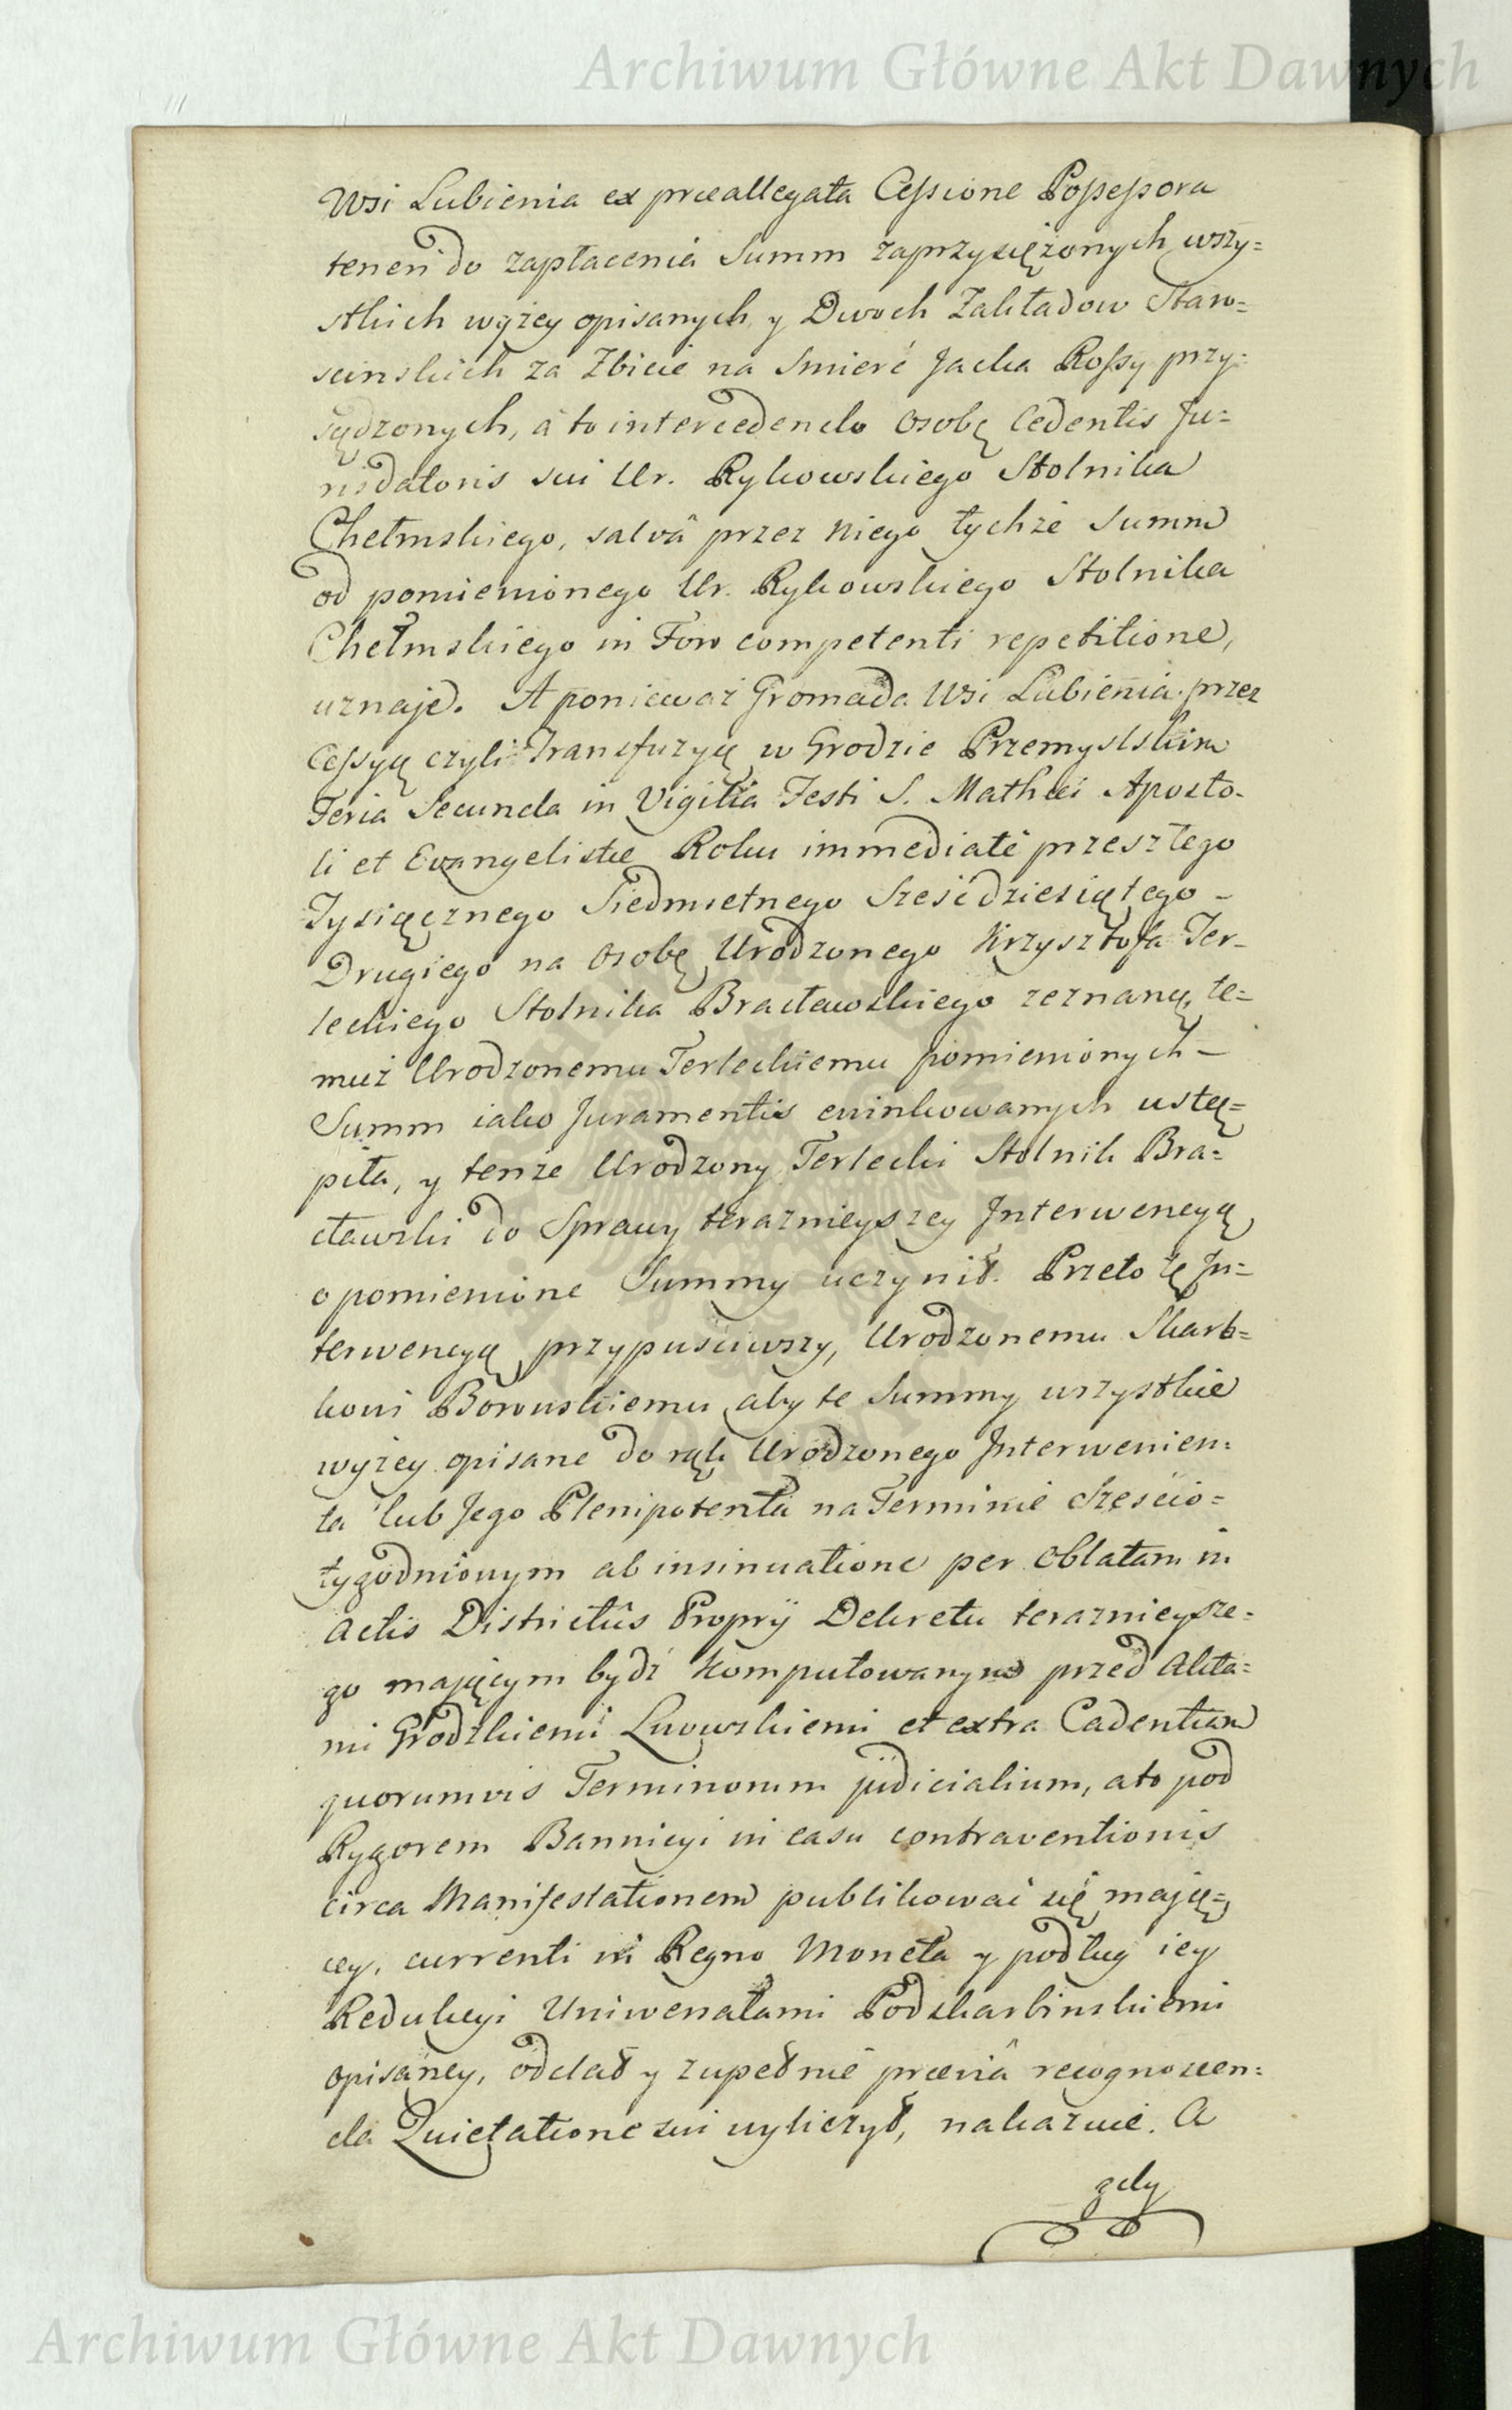 Archiwum Główne Akt Dawnych
Wsi Lubienia ex præallegata Cessione Possessora
teneri do zapłacenia Summ zaprzysiężonych wszy=
stkich wyżey opisanych y Dwoch Zakładow Staro=
scinskich za Zbicie na Smierć Jacka Rossy przy=
sądzonych, á to intercedendo osobę Cedentis Ju=
risdatoris sui Ur. Rykowskiego Stolnika
Chełmskiego, salvâ przez niego tychże Summ
od pomienionego Ur. Rykowskiego Stolnika
Chełmskiego in Foro competenti repetitione,
uznaje. A ponieważ Gromada Wsi Lubienia przez
Cessyą czyli Transfuzyą w Grodzie Przemyslskim
Feria Secunda in Vigilia Festi S. Mathæi Aposto=
li et Evangelistæ Roku immediatè przeszłego
Tysiącznego Siedmsetnego Sześćdziesiątego -
Drugiego na osobę Urodzonego Krzysztofa Ter=
leckiego Stolnika Bracławskiego zeznaną, te=
muż Urodzonemu Terleckiemu pomienionych -
Summ iako Juramentis ewinkowanych ustą=
piła, y tenże Urodzony Terlecki Stolnik Bra=
cławski do Sprawy teraznieyszey Interwencyą
o pomienione Summy uczynił. Przeto tę In=
terwencyą przypusciwszy, Urodzonemu Skarb=
kowi Borowskiemu aby te Summy wszystkie
wyżey opisane do rąk Urodzonego Interwenien=
ta lub Jego Plenipotenta na Terminie sześcio=
tygodniowym ab insinuatione per oblatam in
Actis Districtûs Proprii Dekretu teraznieysze=
go mającym bydź komputowanym przed Akta=
mi Grodzkiemi Lwowskiemi et extra Cadentiam
quorumvis Terminorum judicialium, a to pod
Rygorem Bannicyi in casu contraventionis
circa Manifestationem publikować się mają=
cey, currenti in Regno Moneta y podług iey
Redukcyi Uniwersałami Podskarbinskiemi
opisaney, oddał y zupełnie præviâ recognoscen=
da Quietatione sui wyliczył, nakazuie. A
gdy
Archiwum Główne Akt Dawnych